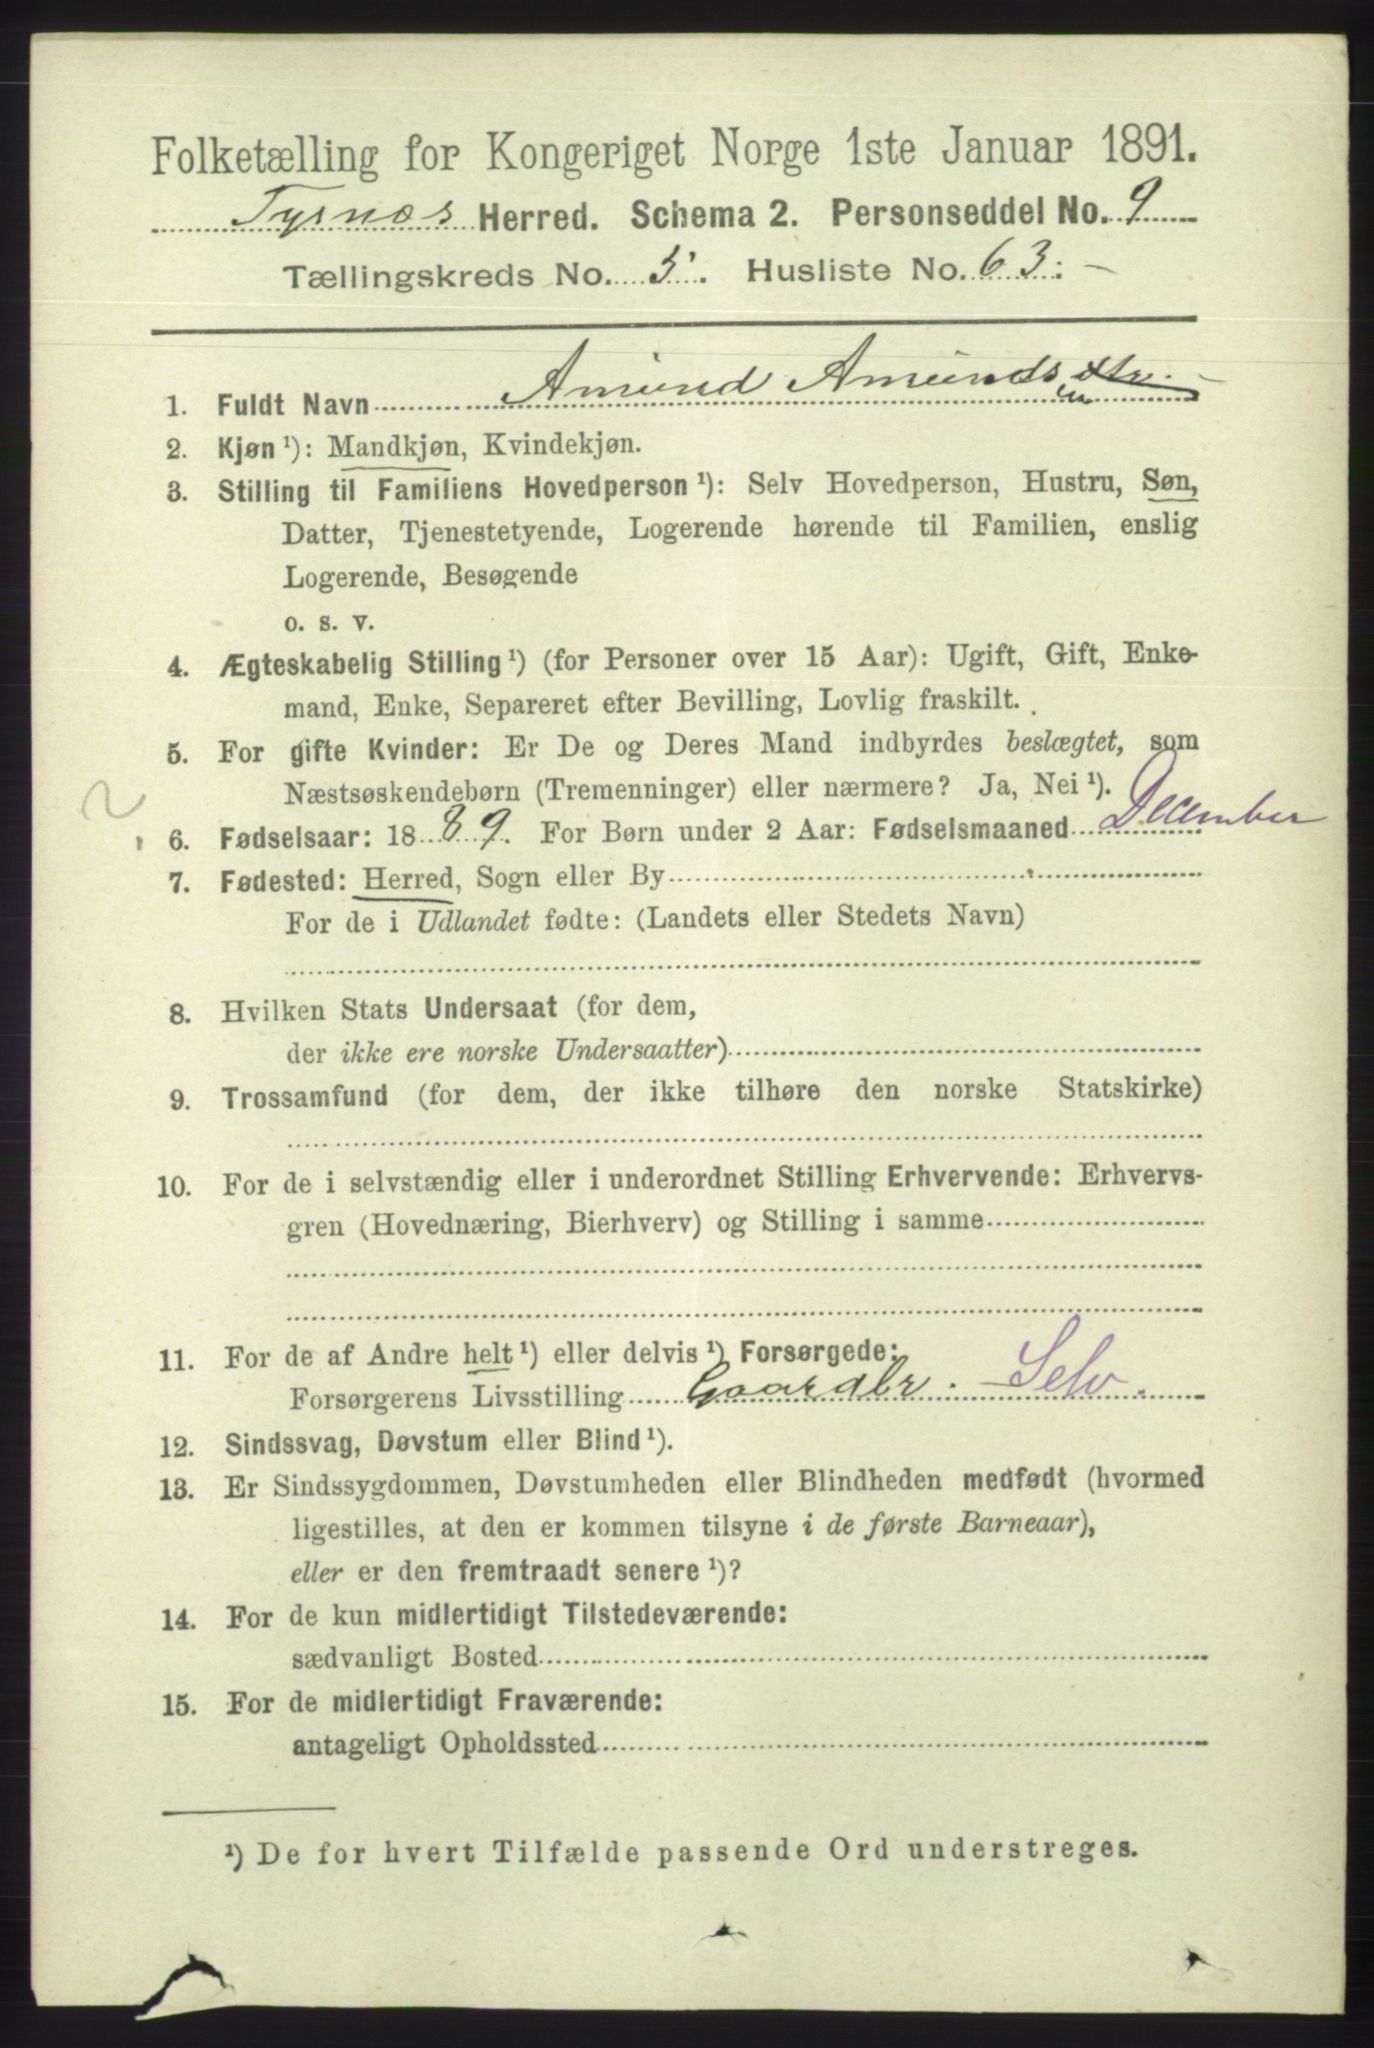 Folketælling for Kongeriget Norge 1ste Januar 1891.
Tysnæs Herred. Schema 2. Personseddel No. 9
Tællingskreds No. 5. Husliste No. 63:-
1. Fuldt Navn Amund Amundsen
2. Kjøn¹): Mandkjøn, Kvindekjøn.
3. Stilling til Familiens Hovedperson¹): Selv Hovedperson, Hustru, Søn,
Datter, Tjenestetyende, Logerende hørende til Familien, enslig
Logerende, Besøgende
o. s. v.
4. Ægteskabelig Stilling¹) (for Personer over 15 Aar): Ugift, Gift, Enke-
mand, Enke, Separeret efter Bevilling, Lovlig fraskilt.
5. For gifte Kvinder: Er De og Deres Mand indbyrdes beslægtet, som
Næstsøskendebørn (Tremenninger) eller nærmere? Ja, Nei¹).
2
6. Fødselsaar: 1889. For Børn under 2 Aar: Fødselsmaaned December
7. Fødested: Herred, Sogn eller By
For de i Udlandet fødte: (Landets eller Stedets Navn)
8. Hvilken Stats Undersaat (for dem,
der ikke ere norske Undersaatter)
9. Trossamfund (for dem, der ikke tilhøre den norske Statskirke)
10. For de i selvstændig eller i underordnet Stilling Erhvervende: Erhvervs-
gren (Hovednæring, Bierhverv) og Stilling i samme
11. For de af Andre helt¹) eller delvis¹) Forsørgede:
Forsørgerens Livsstilling Gaardbr. - Selv.
12. Sindssvag, Døvstum eller Blind¹).
13. Er Sindssygdommen, Døvstumheden eller Blindheden medfødt (hvormed
ligestilles, at den er kommen tilsyne i de første Barneaar),
eller er den fremtraadt senere¹)?
14. For de kun midlertidigt Tilstedeværende:
sædvanligt Bosted
15. For de midlertidigt Fraværende:
antageligt Opholdssted
¹) De for hvert Tilfælde passende Ord understreges.